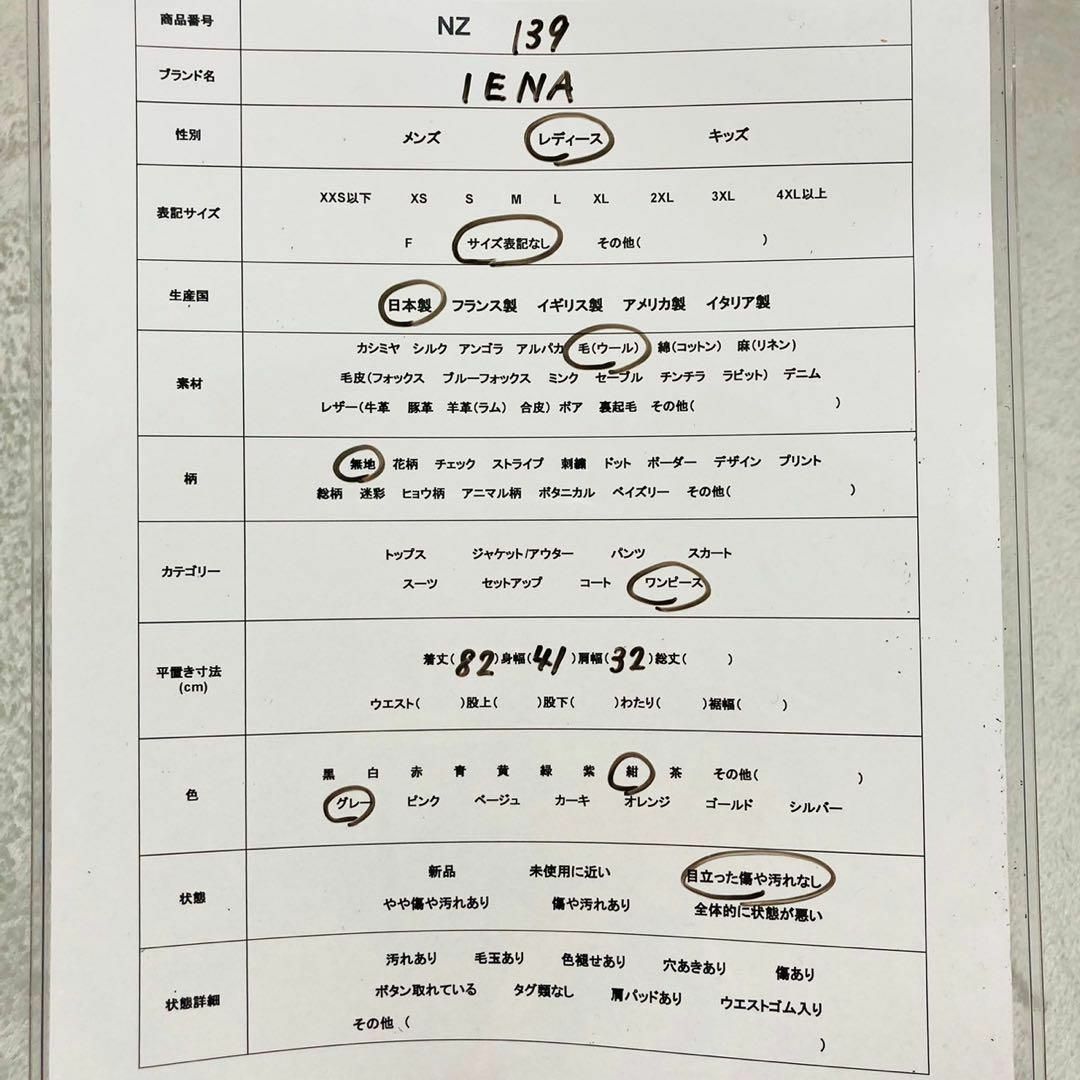 商品番号 NZ 139
ブランド名 IENA
性別 メンズ レディース キッズ
XXS以下 XS S M L XL 2XL 3XL 4XL以上
表記サイズ
F サイズ表記なし その他( )
生産国 日本製 フランス製 イギリス製 アメリカ製 イタリア製
カシミヤ シルク アンゴラ アルパカ 毛(ウール) 綿(コットン) 麻(リネン)
素材 毛皮(フォックス ブルーフォックス ミンク セーブル チンチラ ラビット) デニム
レザー(牛革 豚革 羊革(ラム) 合皮) ボア 裏起毛 その他( )
無地 花柄 チェック ストライプ 刺繍 ドット ボーダー デザイン プリント
柄
総柄 迷彩 ヒョウ柄 アニマル柄 ボタニカル ペイズリー その他( )
トップス ジャケット/アウター パンツ スカート
カテゴリー
スーツ セットアップ コート ワンピース
着丈(82)身幅(41)肩幅(32)総丈( )
平置き寸法
(cm)
ウエスト( )股上( )股下( )わたり( )裾幅( )
黒 白 赤 青 黄 緑 紫 紺 茶 その他( )
色
グレー ピンク ベージュ カーキ オレンジ ゴールド シルバー
新品 未使用に近い 目立った傷や汚れなし
状態
やや傷や汚れあり 傷や汚れあり 全体的に状態が悪い
汚れあり 毛玉あり 色褪せあり 穴あきあり 傷あり
状態詳細 ボタン取れている タグ類なし 肩パッドあり ウエストゴム入り
その他 ( )